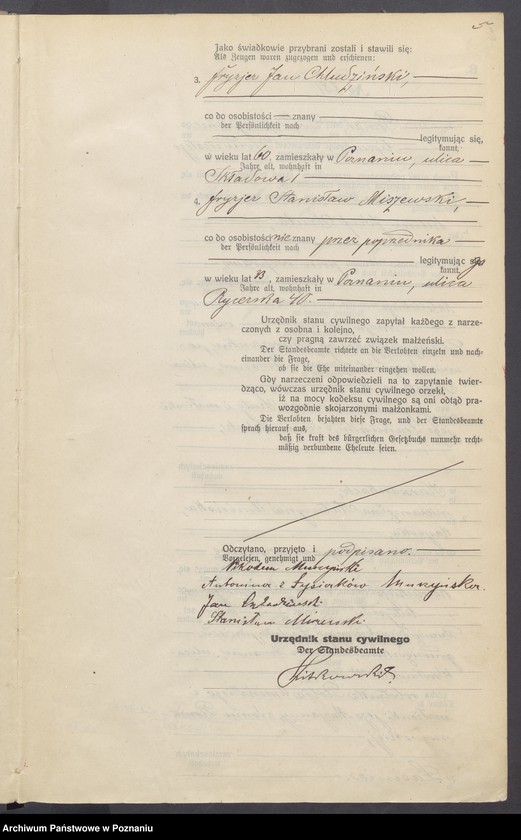 5
Jako świadkowie przybrani zostali i stawili się:
Als Zeugen waren zugezogen und erschienen:
3. fryzjer Jan Chludziński,
co do osobistości — znany
der Persönlichkeit nach
legitymując się,
kannt,
w wieku lat 60, zamieszkały w Poznaniu, ulica
Jahre alt, wohnhaft in
Składowa 1
4. fryzjer Stanisław Miszewski,
co do osobistości nie znany przez poprzednika
der Persönlichkeit nach
legitymując go
kannt,
w wieku lat, zamieszkały w Poznaniu, ulica
Jahre alt, wohnhaft in
Rycerska 40.
Urzędnik stanu cywilnego zapytał każdego z narze-
czonych z osobna i kolejno,
czy pragną zawrzeć związek małżeński.
Der Standesbeamte richtete an die Verlobten einzeln und nach-
einander die Frage,
ob sie die Ehe miteinander eingehen wollen.
Gdy narzeczeni odpowiedzieli na to zapytanie twier-
dząco, wówczas urzędnik stanu cywilnego orzekł,
iż na mocy kodeksu cywilnego są oni odtąd pra-
wozgodnie skojarzonymi małżonkami.
Die Verlobten bejahten diese Frage, und der Standesbeamte
sprach hierauf aus,
daß sie kraft des bürgerlichen Gesetzbuchs nunmehr recht-
mäßig verbundene Eheleute seien.
Odczytano, przyjęto i podpisano.
Vorgelesen, genehmigt und
Nikodem
Antonina z
Jan
Stanisław
Urzędnik stanu cywilnego
Der Standesbeamte
Archiwum Państwowe w Poznaniu